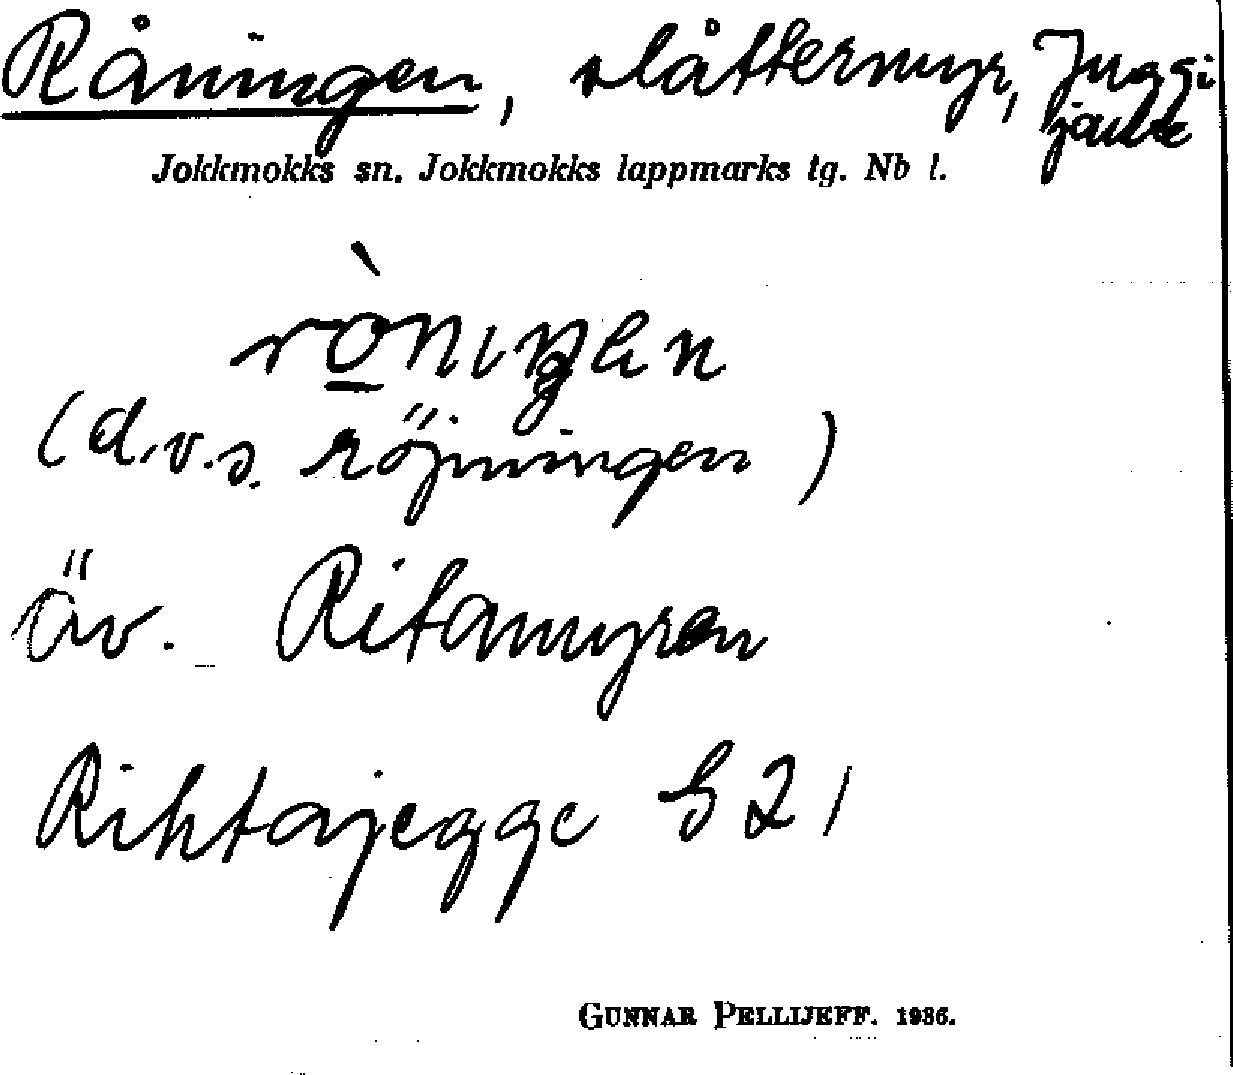 Råningen, slåttermyr, Juggi
jaure
Jokkmokks sn. Jokkmokks lappmarks tg. Nb l.
ròningen
(d.v.s. röjningen)
äv. Ritamyren
Rihtajegge G 21
GUNNAR PELLIJEFF. 1936.